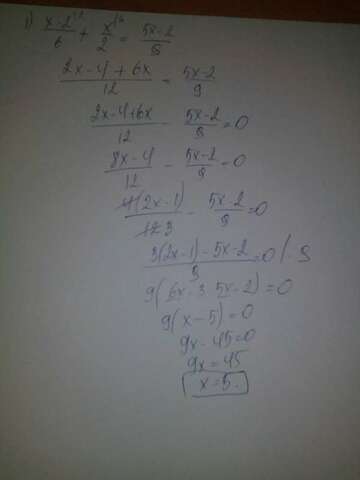 1) (x-2)/6 + x/2 = (5x-2)/9
(2x-4+6x)/12 = (5x-2)/9
(2x-4+6x)/12 - (5x-2)/9 = 0
(8x-4)/12 - (5x-2)/9 = 0
4(2x-1)/12 3 - (5x-2)/9 = 0
(3(2x-1)-5x-2)/9 = 0 /· 9
9(6x-3 5x-2) = 0
9(x-5) = 0
9x-45=0
9x=45
x=5.